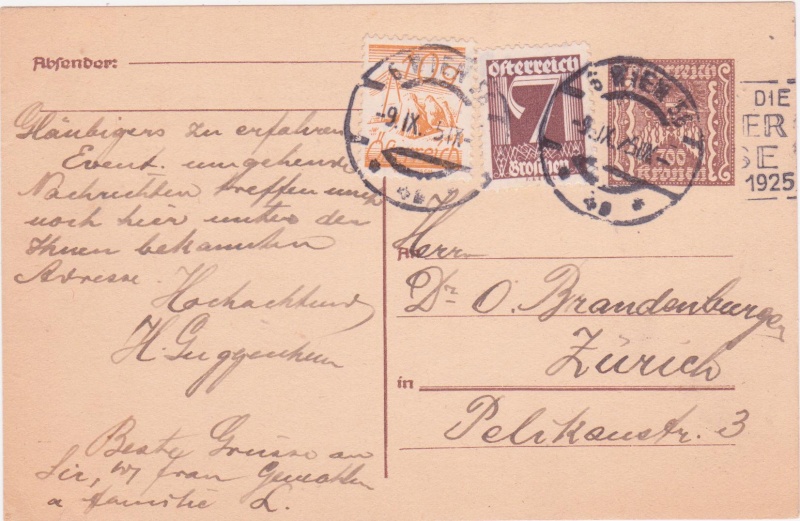 Absender:
Gläubigers zu erfahren
Event. umgehende
Nachrichten treffen mich
noch hier unter der
Ihnen bekannten
Adresse.
Hochachtend
H. Guggenheim
Beste Grüsse an
Sie, Frau Gemahlin
Familie L.
10
Österreich
7
Österreich
Groschen
Österreich
700
Kronen
WIEN
-9.IX.25
WIEN 50
-9.IX.25
DIE
ER
SE
1925
An
Herrn
Dr. O. Brandenburger
Zürich
in
Pelikanstr. 3